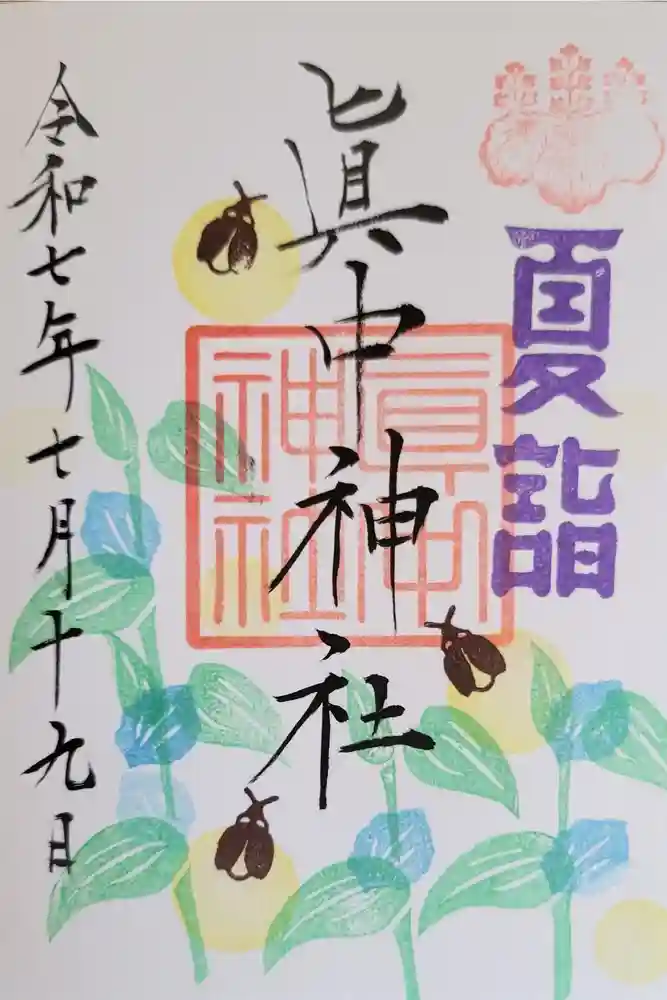 夏詣
眞中神社
眞中神社
令和七年七月十九日